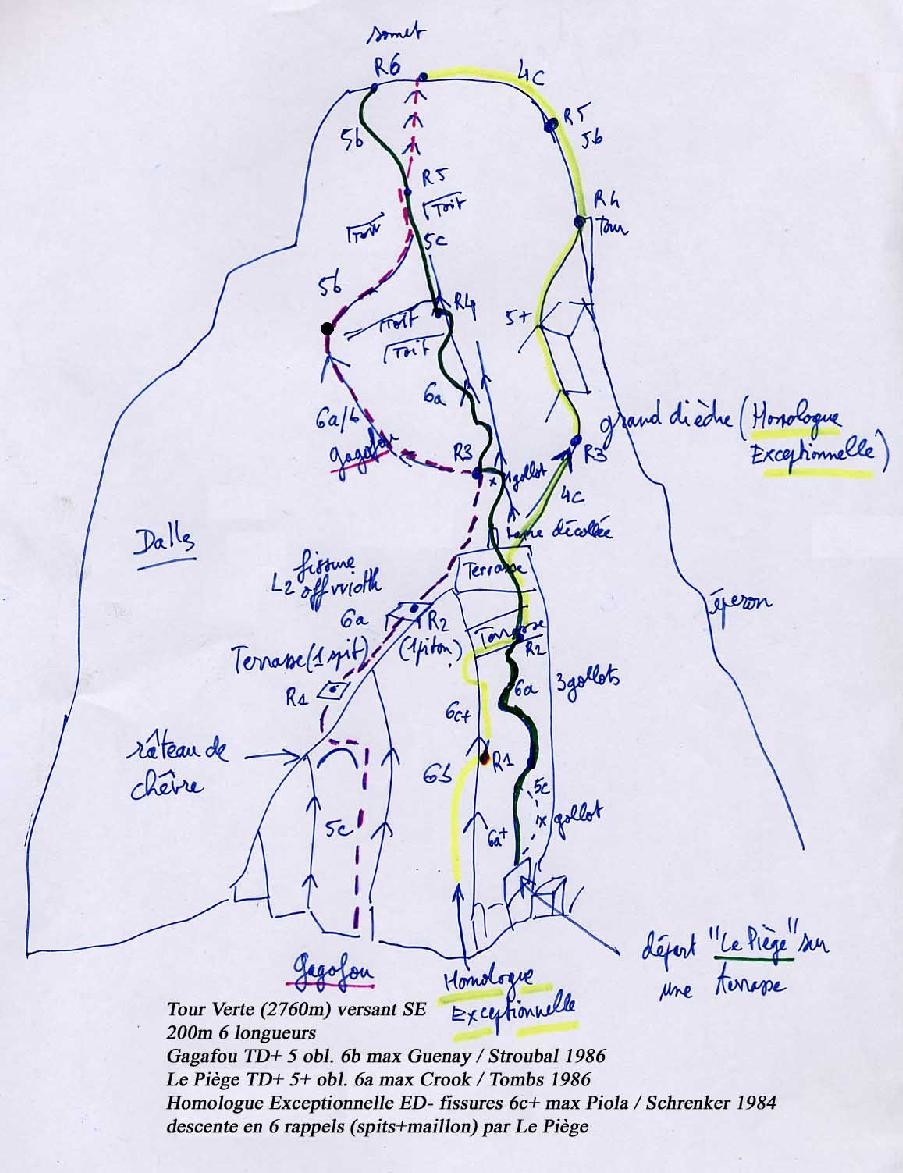 somet
R6
4c
5b
R5
5b
R5
Toit
Toit
R4
Tour
5c
5b
R4
5+
Toit
Toit
6a
6a/b
gagofou
R3
1 gollot
R3
grand dièdre (Homologue
Exceptionnelle)
4c
lame décollée
Dalls
Terrasse
fissure
L2 offwidth
6a
R2
(1 piton)
Terrasse
R2
éperon
Terrasse (1 spit)
R1
6a
3 gollots
6c+
râteau de
chêvre
R1
6b
5c
5c
1x gollot
6a+
départ "Le Piège" sur
une terrasse
Gagofou
Homologue
Exceptionnelle
Tour Verte (2760m) versant SE
200m 6 longueurs
Gagafou TD+ 5 obl. 6b max Guenay / Stroubal 1986
Le Piège TD+ 5+ obl. 6a max Crook / Tombs 1986
Homologue Exceptionnelle ED- fissures 6c+ max Piola / Schrenker 1984
descente en 6 rappels (spits+maillon) par Le Piège